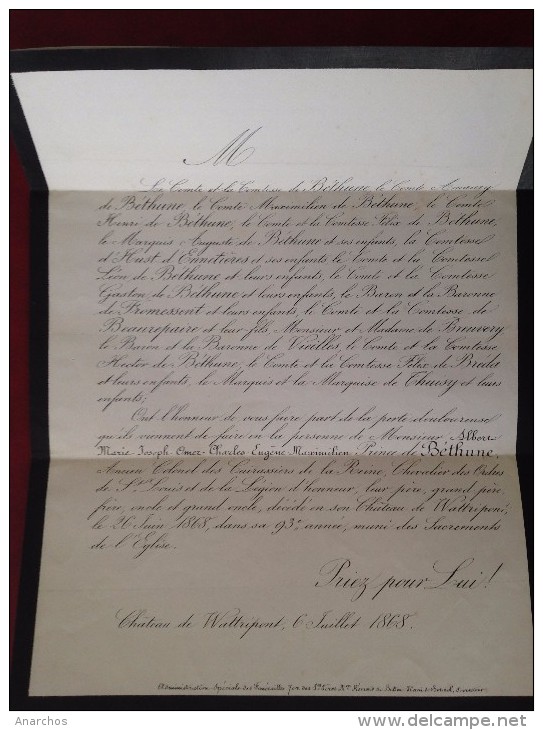 M
Le Comte et la Comtesse de Béthune, le Comte Amaury
de Béthune, le Comte Maximilien de Béthune, le Comte
Henri de Béthune, le Comte et la Comtesse Félix de Béthune,
le Marquis Auguste de Béthune et ses enfants, la Comtesse
d'Hust et ses enfants le Comte et la Comtesse
Léon de Béthune et leurs enfants, le Comte et la Comtesse
Gaston de Béthune et leurs enfants, le Baron et la Baronne
de et leurs enfants, le Comte et la Comtesse de
Beaurepaire et leur fils, Monsieur et Madame de Bruvery
le Baron et la Baronne de le Comte et la Comtesse
Hector de Béthune, le Comte et la Comtesse Félix de
et leurs enfants, le Marquis et la Marquise de Thuisy et leurs
enfants;
Ont l'honneur de vous faire part de la perte douloureuse
qu'ils viennent de faire en la personne de Monsieur Albert
Marie-Joseph-Omer-Charles-Eugène-Maximilien, Prince de Béthune,
Ancien Colonel des Cuirassiers de la Reine, Chevalier des Ordres
de St. Louis et de la Légion d'honneur, leur père, grand père,
frère, oncle et grand oncle, décédé en son Château de Wattripont,
le 26 Juin 1868, dans sa 93e. année, muni des Sacrements
de l'Eglise.
Priez pour Lui!
Château de Wattripont, 6 Juillet 1868.
Administration Spéciale des Funérailles
Anarchos
delcampe.net